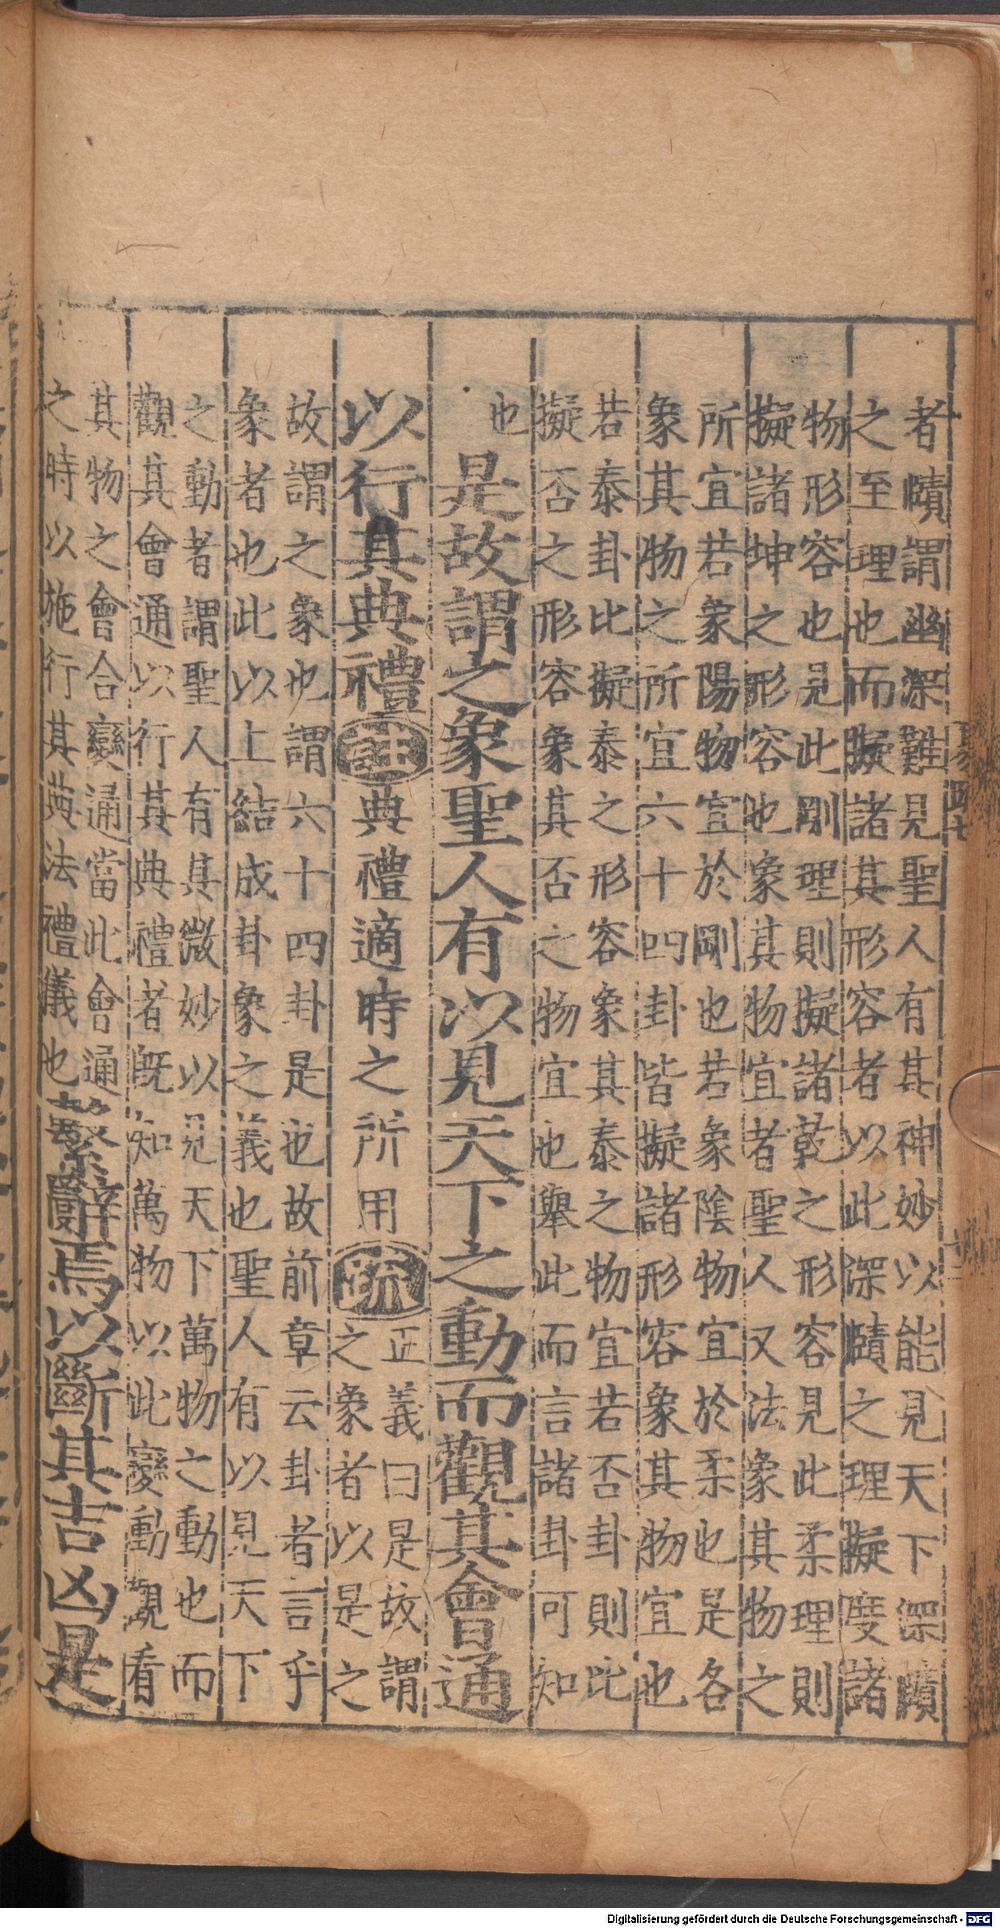 者賾謂幽深難見聖人有其神妙以能見天下深賾
之至理也而擬諸其形容者以此深賾之理擬度諸
物形容也見此剛理則擬諸乾之形容見此柔理則
擬諸坤之形容也象其物宜者聖人又法象其物之
所宜若象陽物宜於剛也若象陰物宜於柔也是各
象其物之所宜六十四卦皆擬諸形容象其物宜也
若泰卦比擬泰之形容象其泰之物宜若否卦則比
擬否之形容象其否之物宜也舉此而言諸卦可知
也
是故謂之象聖人有以見天下之動而觀其會通
以行其典禮註典禮適時之所用疏正義曰是故謂
之象者以是之
故謂之象也謂六十四卦是也故前章云卦者言乎
象者也此以上結成卦象之義也聖人有以見天下
之動者謂聖人有其微妙以見天下萬物之動也而
觀其會通以行其典禮者既知萬物以此變動觀看
其物之會合變通當此會通
之時以施行其典法禮儀也繫辭焉以斷其吉凶是
Digitalisierung gefördert durch die Deutsche Forschungsgemeinschaft - DFG